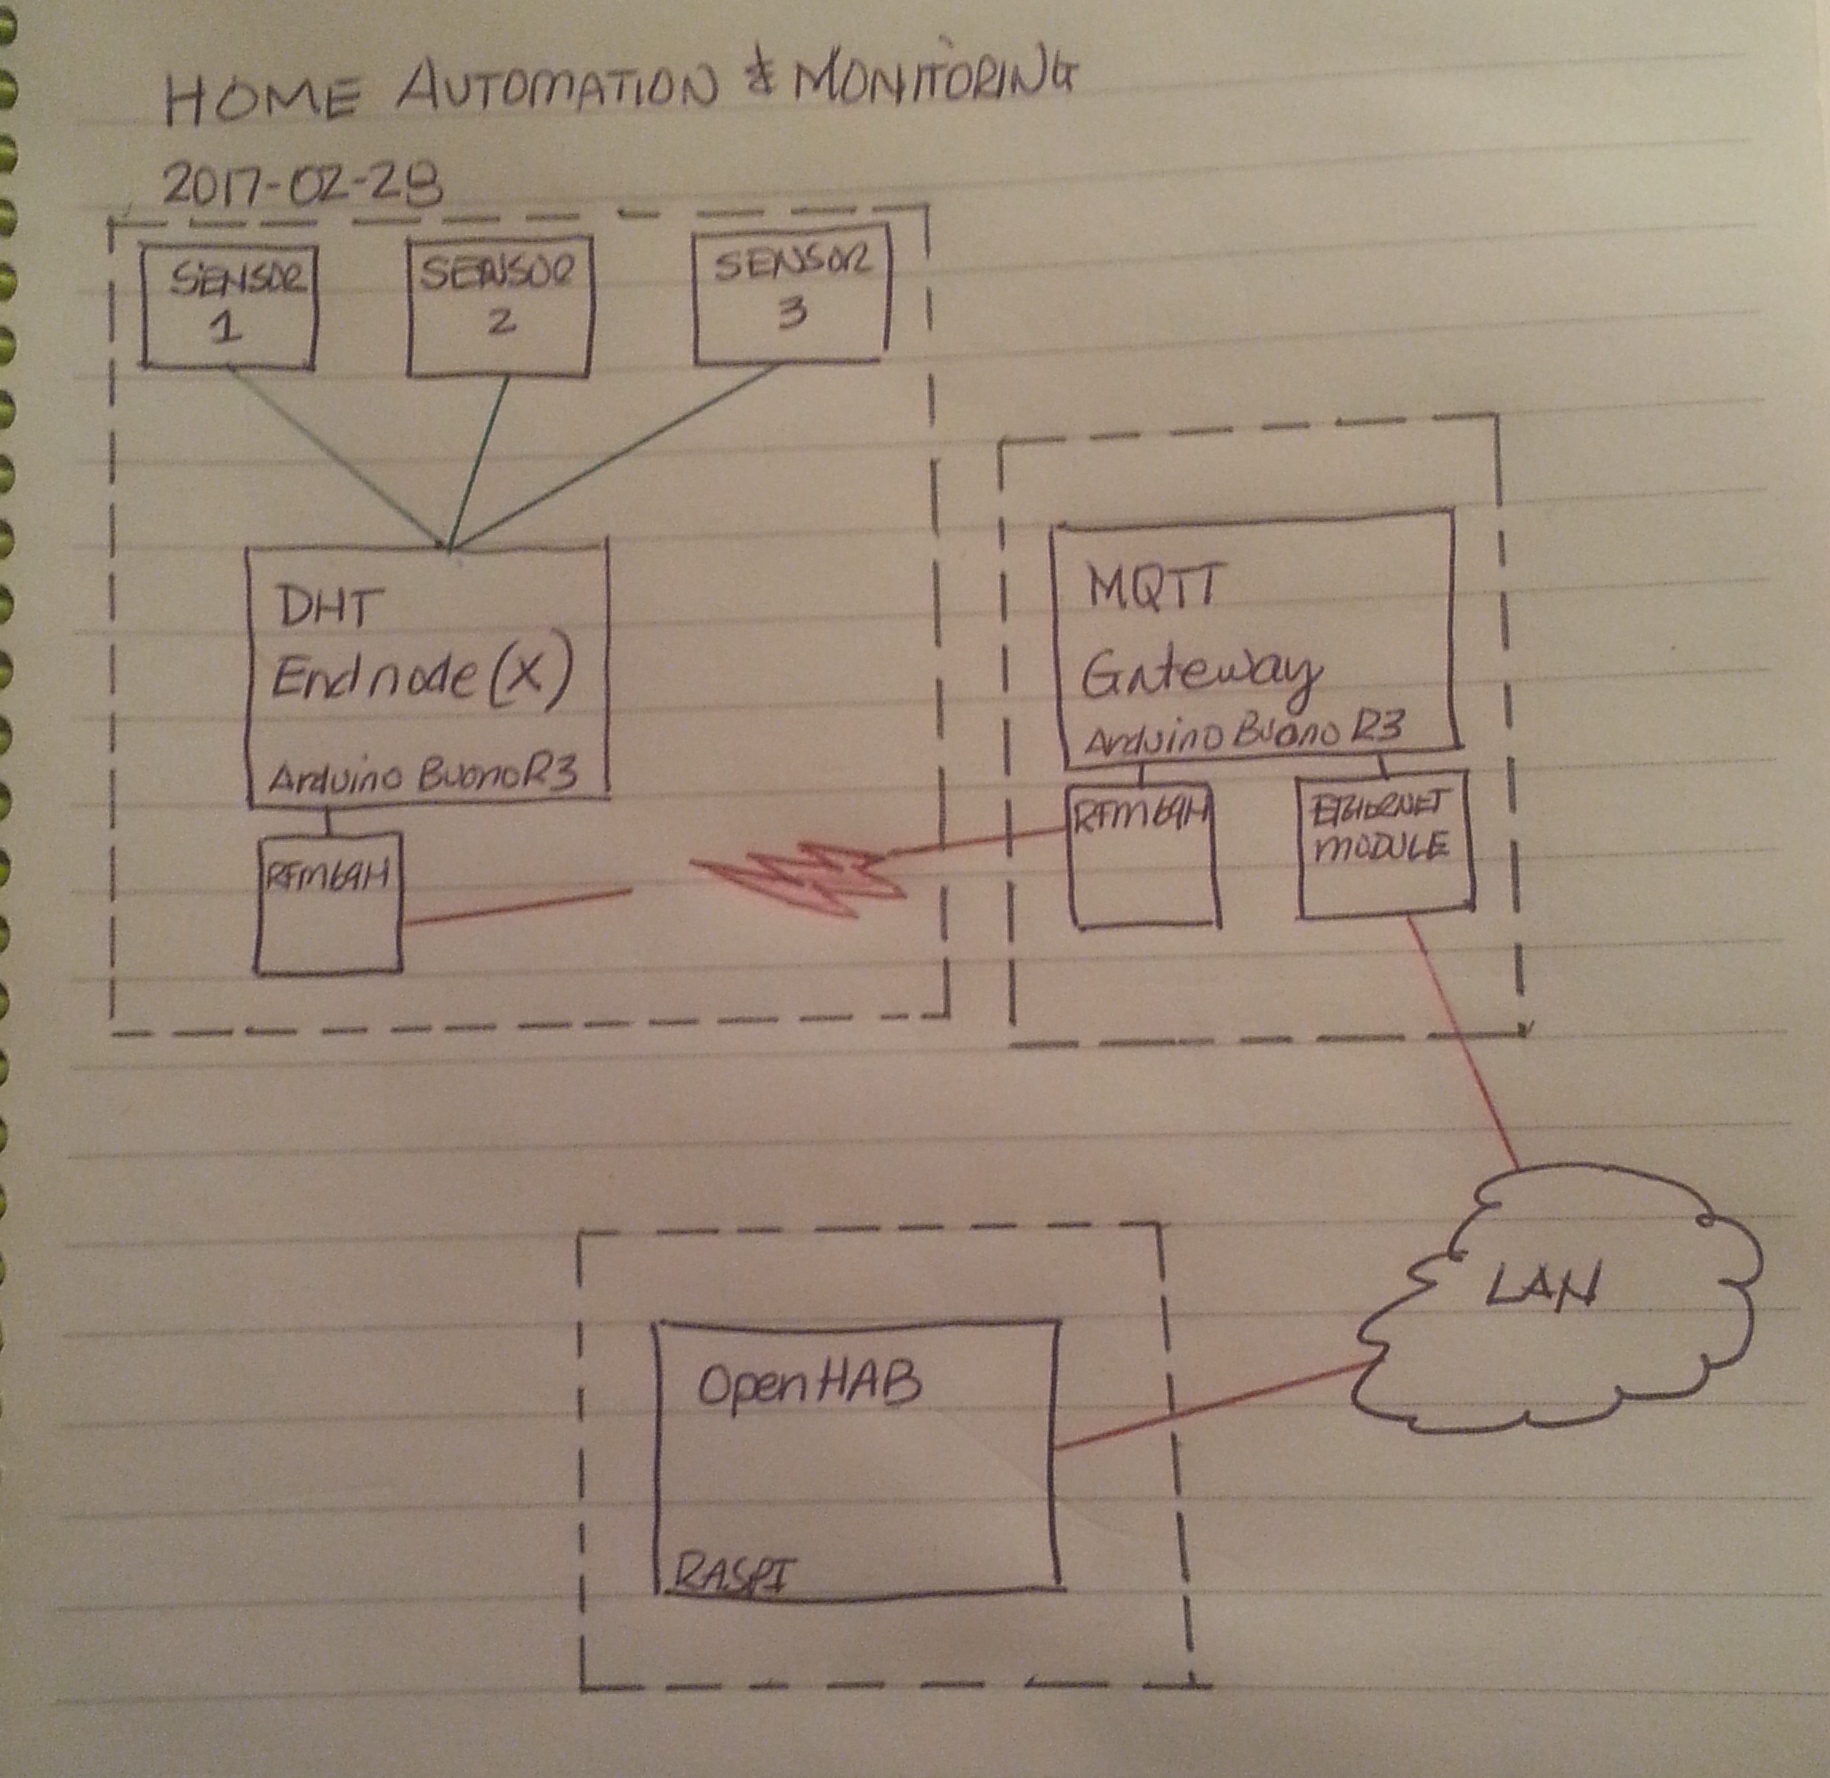 HOME AUTOMATION & MONITORING
2017-02-28
SENSOR
1
SENSOR
2
SENSOR
3
DHT
Endnode (X)
Arduino Buono R3
RFM69H
MQTT
Gateway
Arduino Buono R3
RFM69H
ETHERNET
MODULE
LAN
OpenHAB
RASPI